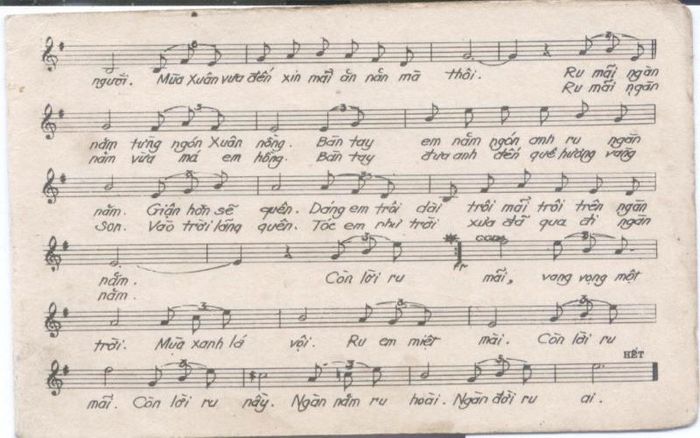 người. Mùa Xuân vừa đến xin mãi ăn năn mà thôi. Ru mãi ngàn
Ru mãi ngàn
năm từng ngón Xuân nồng. Bàn tay em năm ngón anh ru ngàn
năm vừa má em hồng. Bàn tay đưa anh đến quê hương vàng
năm. Giận hờn sẽ quên. Dáng em trôi dài trôi mãi trôi trên ngàn
Son. Vào trời lãng quên. Tóc em như trời xưa đã qua đi ngàn
năm. Còn lời ru mãi, vang vọng một
năm.
trời. Mùa xanh lá vội. Ru em miệt mài. Còn lời ru
mãi. Còn lời ru này. Ngàn năm ru hoài. Ngàn đời ru ai.
HẾT